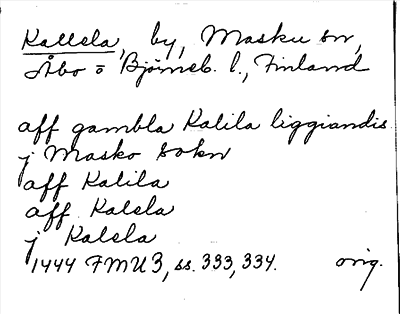 Kallela, by, Masku sn,
Åbo o Björneb. l., Finland
aff gambla Kalila liggiandis
j Masko Sokn
aff Kalila
aff Kalela
j Kalela
1444 FMU3, ss. 333, 334. orig.